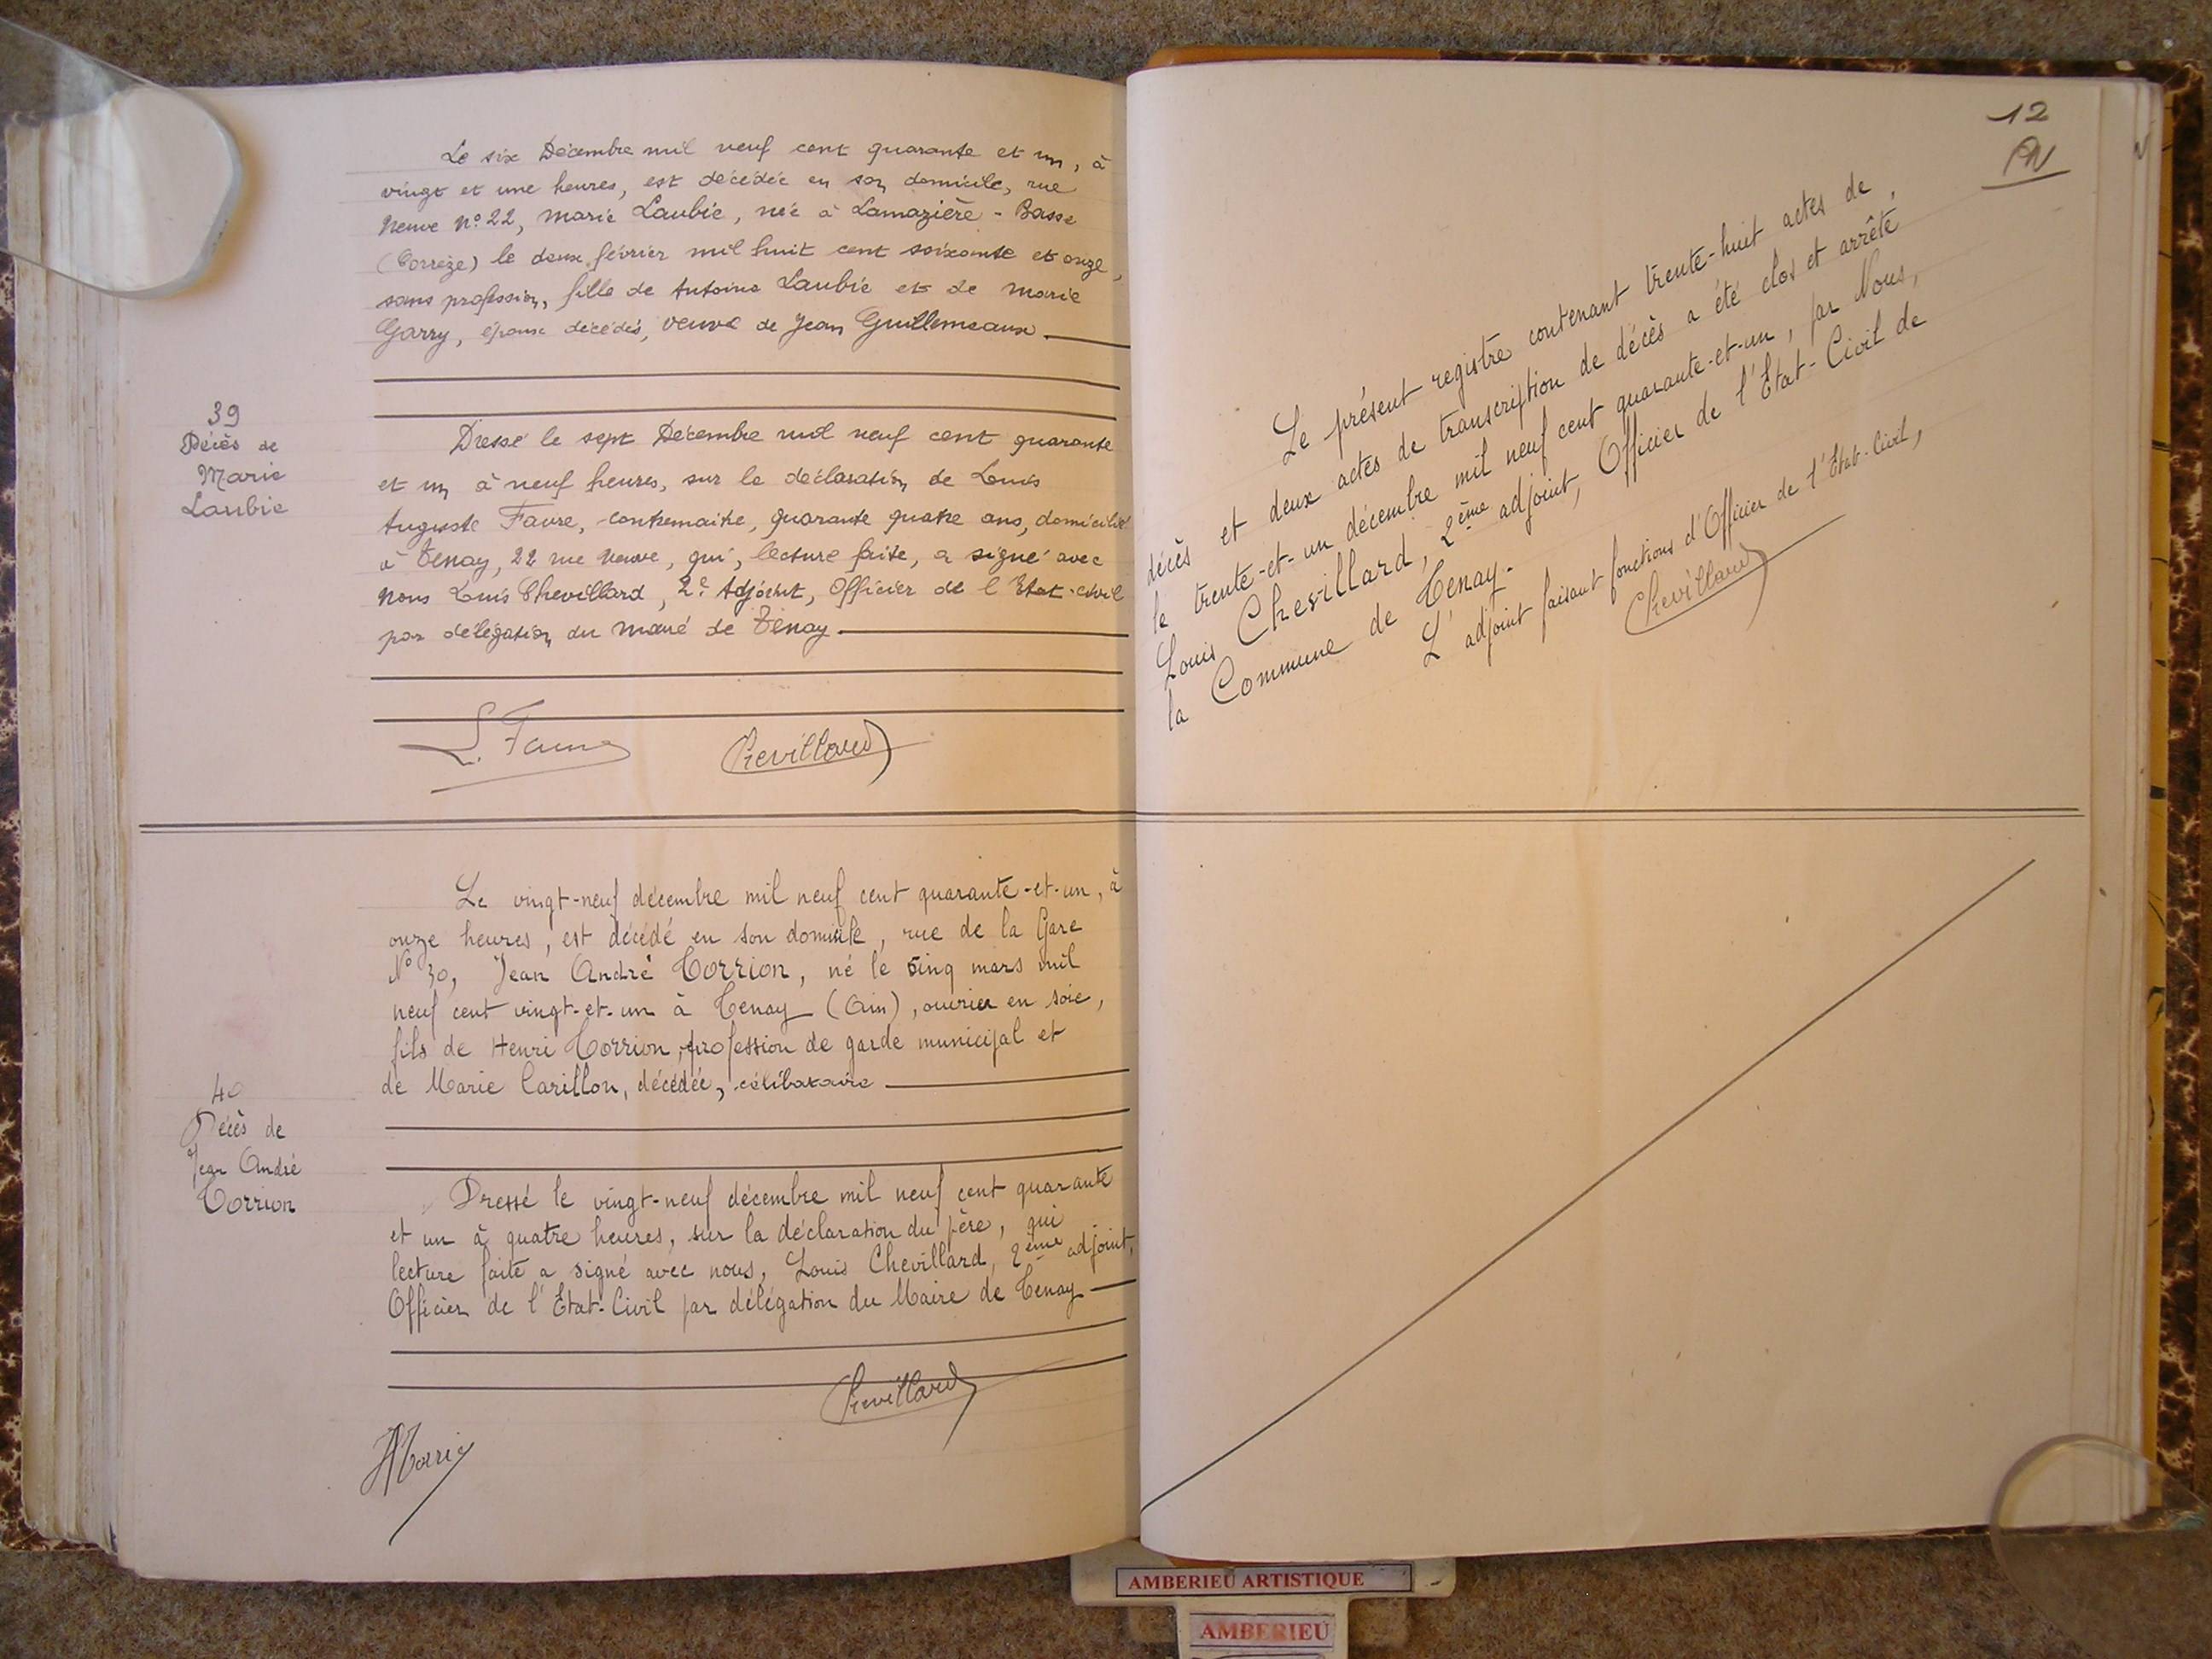 Le six Décembre mil neuf cent quarante et un, à
vingt et une heures, est décédée en son domicile, rue
Neuve N° 22, Marie Laubie, née à Lamazière - Basse
(Corrèze) le deux février mil huit cent soixante et onze,
sans profession, fille de Antoine Laubie et de Marie
Garry, époux décédés, veuve de Jean Guillemeaux.
39
Décès de
Marie
Laubie
Dressé le sept Décembre mil neuf cent quarante
et un à neuf heures, sur la déclaration de Louis
Auguste Faure, contremaitre, quarante quatre ans, domicilié
à Tenay, 22 rue Neuve, qui, lecture faite, a signé avec
Nous Louis Chevillard, 2e Adjoint, Officier de l'Etat-civil
par délégation du Maire de Tenay
L. Faure
Chevillard
Le vingt-neuf décembre mil neuf cent quarante-et-un, à
onze heures, est décédé en son domicile, rue de la Gare
N° 30, Jean André Torrion, né le cinq mars mil
neuf cent vingt-et-un à Tenay (Ain), ouvrier en soie,
fils de Henri Torrion, profession de garde municipal et
de Marie Carillon, décédée, célibataire
40
Décès de
Jean André
Torrion
Dressé le vingt-neuf décembre mil neuf cent quarante
et un à quatre heures, sur la déclaration du père, qui
lecture faite a signé avec nous, Louis Chevillard, 2ème adjoint,
Officier de l'Etat-Civil par délégation du Maire de Tenay
Chevillard
12
Le présent registre contenant trente-huit actes de
décès et deux actes de transcription de décès a été clos et arrêté
le trente-et-un décembre mil neuf cent quarante-et-un, par Nous,
Louis Chevillard, 2ème adjoint, Officier de l'Etat-Civil de
la Commune de Tenay.
L'adjoint faisant fonctions d'Officier de l'Etat-Civil,
Chevillard
AMBERIEU ARTISTIQUE
AMBERIEU